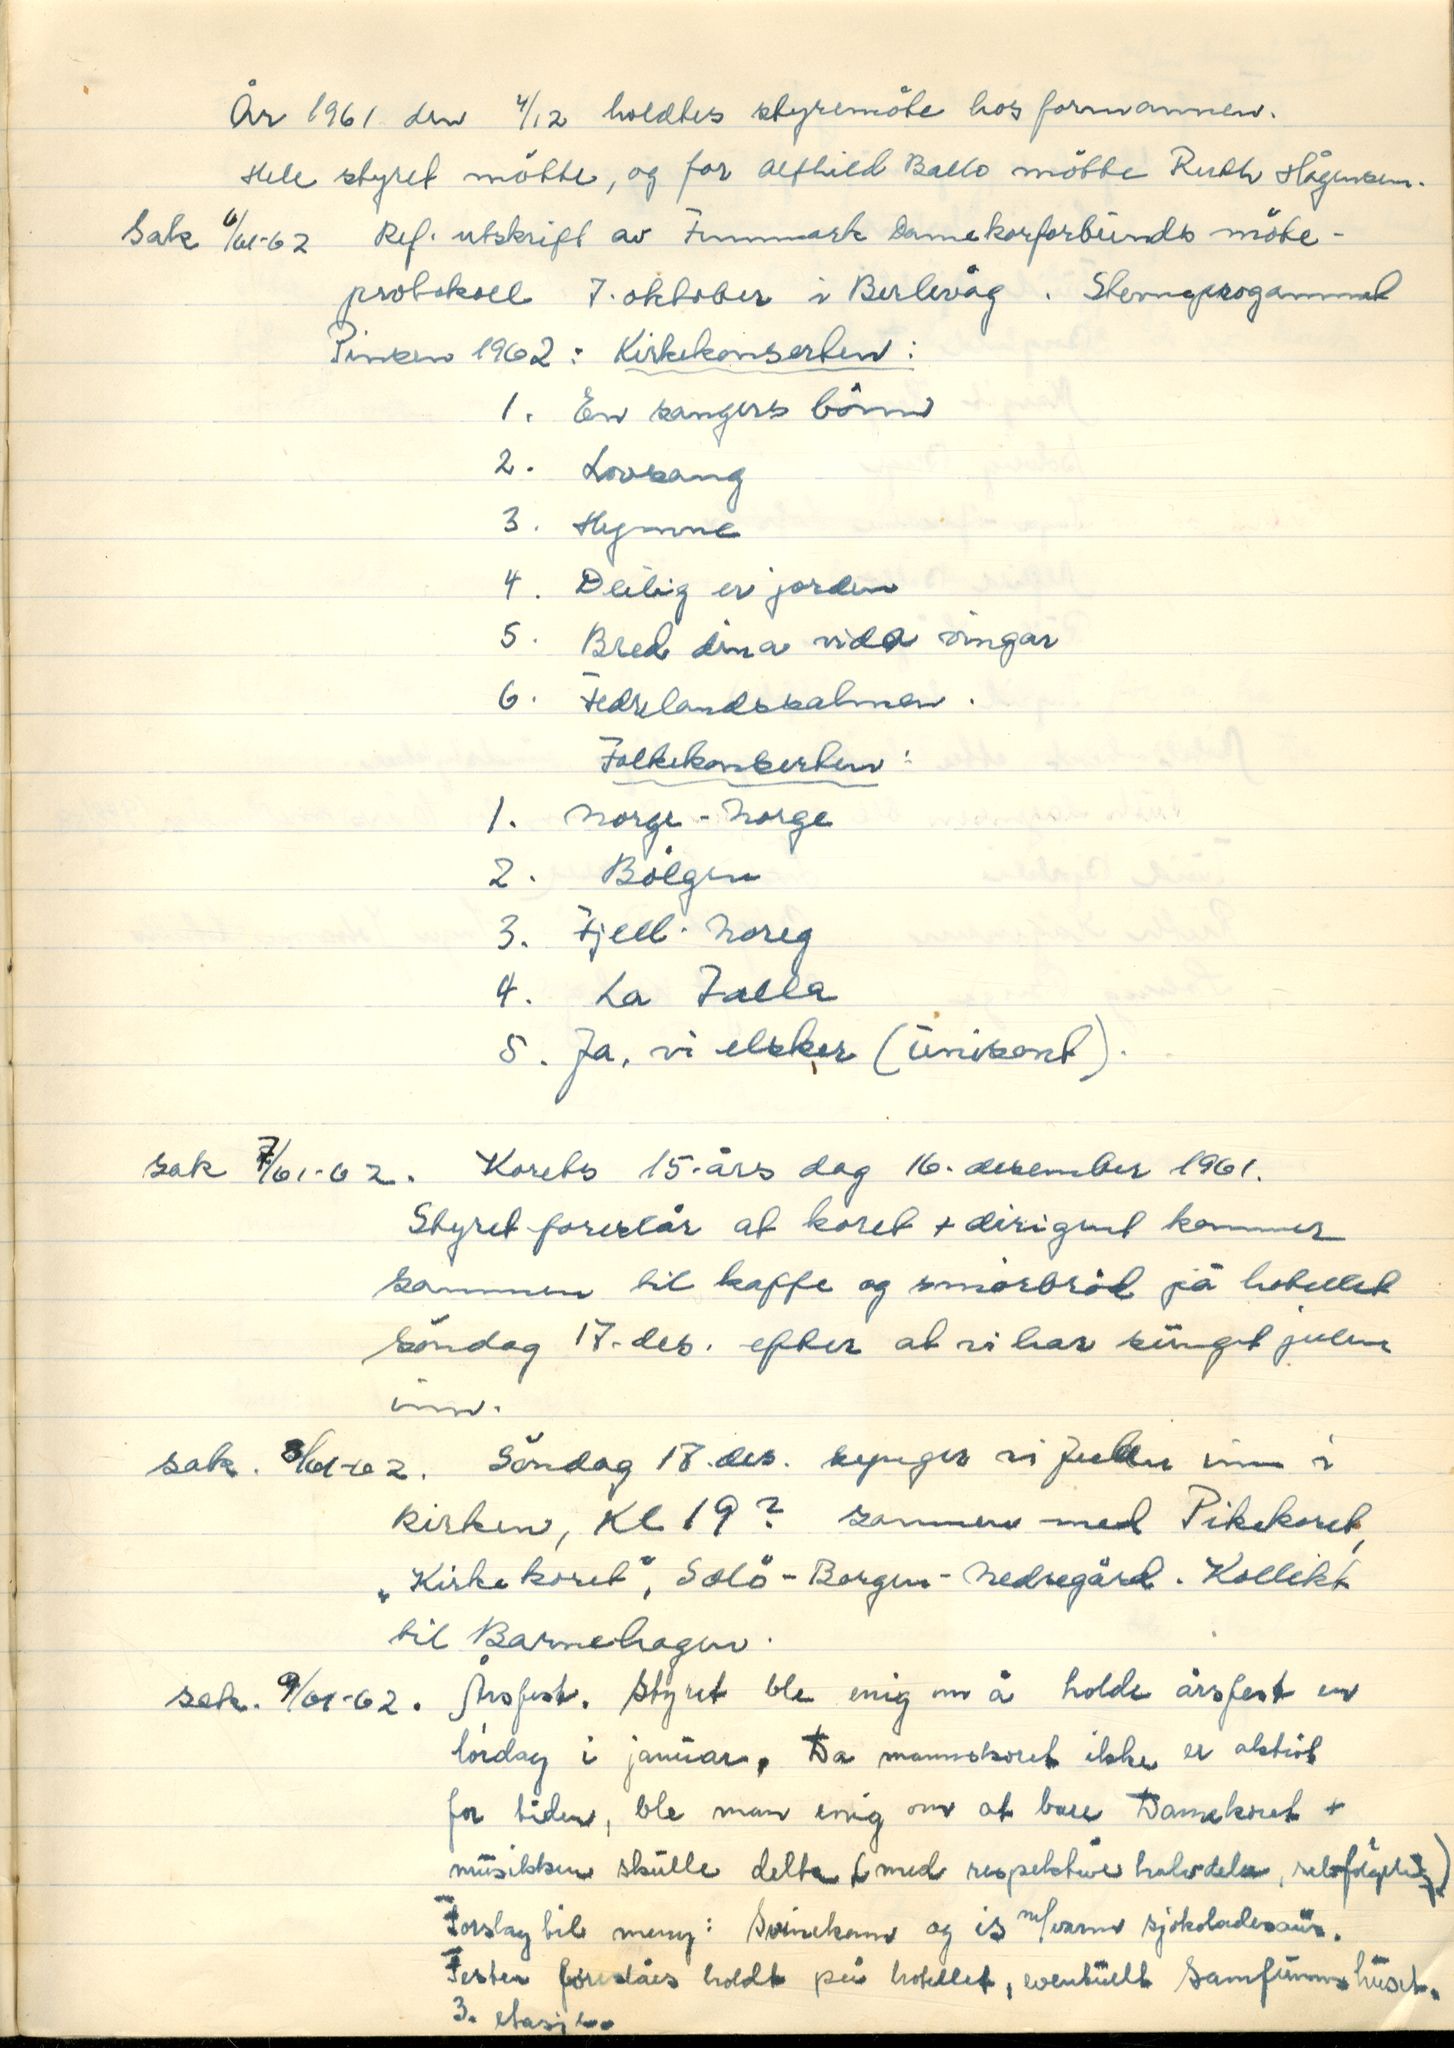 År 1961 den 4/12 holdtes styremöte hos formannen.
Hele styret mötte, og for Alfhild Ballo mötte Ruth Hågensen.
Sak 6/61-62 Ref. utskrift av Finnmark Damekorforbunds möte-
protokoll 7. oktober i Berlevåg. Stevneprogammet
Pinsen 1962: Kirkekonserten:
1. En sangers bönn
2. Lovsang
3. Hymne
4. Deilig er jorden
5. Bred dina vida vingar
6. Fedrelandssalmen.
Folkekonserten:
1. Norge-Norge
2. Bölgen
3. Fjell-Noreg
4. La Falla
5. Ja, vi elsker (unisont).
sak 7/61-62. Korets 15-års dag 16. desember 1961.
Styret foreslår at koret + dirigent kommer
sammen til kaffe og smörbröd på hotellet
söndag 17. des. efter at vi har sunget julen
inn.
sak. 8/61-62. Söndag 18. des. synger vi julen inn i
kirken, Kl 19? sammen med Pikekoret,
"Kirkekoret", Solö-Borgen-Nedregård. Kollekt
til Barnehagen.
sak. 9/61-62. Årsfest. Styret ble enig om å holde årsfest en
lördag i januar. Da mannskoret ikke er aktivt
for tiden, ble man enig om at bare Damekoret +
musikken skulle delta (med respektive halvdeler, selvfölgelig)
Forslag til meny: Svinekam og is m/varm sjokoladesaus.
Festen foreslåes holdt på hotellet, eventuelt Samfunnshuset.
3. etasje.